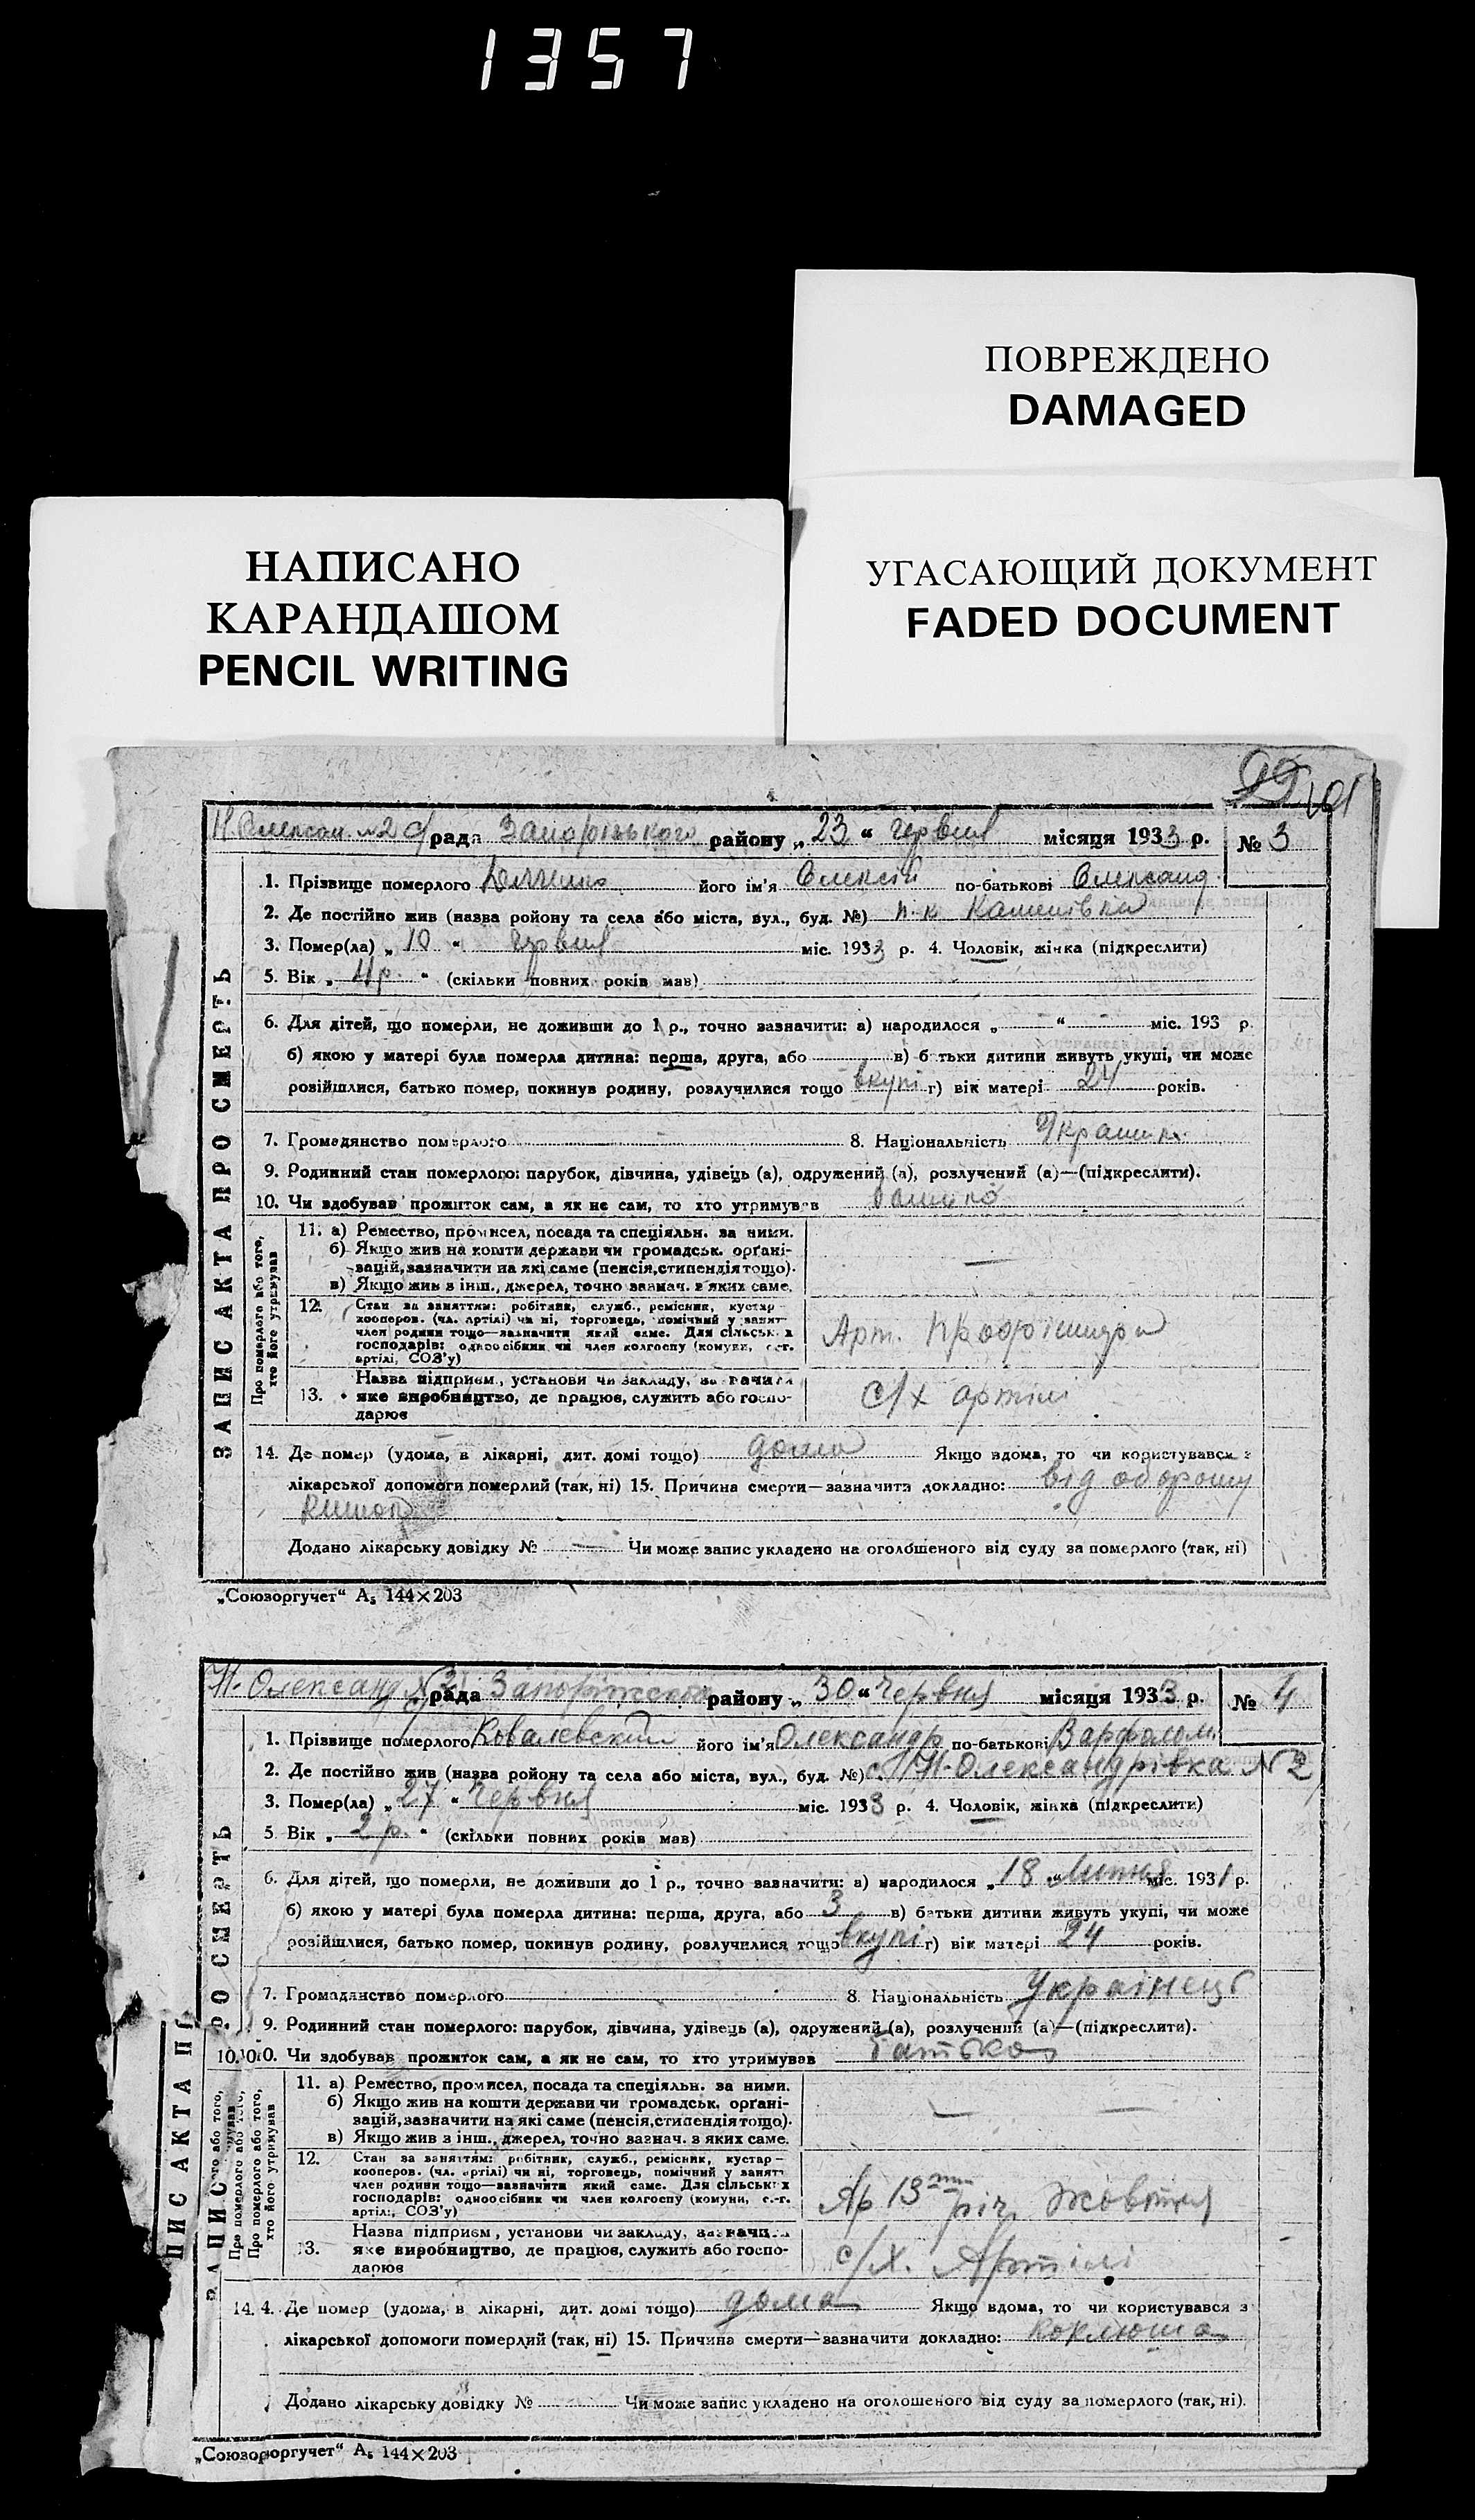 1357
ПОВРЕЖДЕНО
DAMAGED
НАПИСАНО
КАРАНДАШОМ
PENCIL WRITING
УГАСАЮЩИЙ ДОКУМЕНТ
FADED DOCUMENT
101
Н. Олександ. №2 с/рада Запорізького району „23“ червня місяця 1933 р. № 3
1. Прізвище померлого його ім'я Олексій по-батькові Олександ.
2. Де постійно жив (назва ройону та села або міста, вул., буд. №)
3. Помер(ла) „10“ червня міс. 1933 р. 4. Чоловік, жінка (підкреслити)
5. Вік „4 р.“ (скільки повних років мав)
6. Для дітей, що померли, не доживши до 1 р., точно зазначити: а) народилося „ “ міс. 193 р.
б) якою у матері була померла дитина: перша, друга, або в) батьки дитини живуть укупі, чи може
розійшлися, батько помер, покинув родину, розлучилися тощо вкупі г) вік матері 24 років.
7. Громадянство померлого 8. Національність
9. Родинний стан померлого: парубок, дівчина, удівець (а), одружений (а), розлучений (а)—(підкреслити).
10. Чи здобував прожиток сам, а як не сам, то хто утримував батько
ЗАПИС АКТА ПРО СМЕРТЬ
Про померлого або того,
хто його утримував
11. а) Ремество, промисел, посада та спеціяльн. за ними.
б) Якщо жив на кошти держави чи громадськ. орґані-
зацій, зазначити на які саме (пенсія, стипендія тощо).
в) Якщо жив з інш., джерел, точно зазнач. з яких саме.
12. Стан за заняттям: робітник, служб., ремісник, кустар—
кооперов. (чл. артілі) чи ні, торговець, помічний у занят—
член родини тощо—зазначити який саме. Для сільських
господарів: одноосібник чи член колгоспу (комуни, с.-г.
артілі, СОЗ'у)
Арт.
Назва підприєм., установи чи закладу, зазначити
13. яке виробництво, де працює, служить або госпо-
дарює
с/х артілі
14. Де помер (удома, в лікарні, дит. домі тощо) дома Якщо вдома, то чи користувався з
лікарської допомоги померлий (так, ні) 15. Причина смерти—зазначити докладно: від
Додано лікарську довідку № — Чи може запис укладено на оголошеного від суду за померлого (так, ні)
„Союзоргучет“ А₅ 144×203
Н. Олександ №2 с/рада району „30“ Червня місяця 1933 р. № 4
1. Прізвище померлого Ковалевский його ім'я Олександр по-батькові Варфолом.
2. Де постійно жив (назва ройону та села або міста, вул., буд. №) с. Н-Олександрівка №2
3. Помер(ла) „27“ Червня міс. 1933 р. 4. Чоловік, жінка (підкреслити)
5 Вік „2 р.“ (скільки повних років мав)
6. Для дітей, що померли, не доживши до 1 р., точно зазначити: а) народилося „18“ міс. 1931 р.
б) якою у матері була померла дитина: перша, друга, або 3 в) батьки дитини живуть укупі, чи може
розійшлися, батько помер, покинув родину, розлучилися тощо вкупі г) вік матері 24 років.
7. Громадянство померлого 8. Національність Українець
9. Родинний стан померлого: парубок, дівчина, удівець (а), одружений (а), розлучений (а)—(підкреслити).
10. Чи здобував прожиток сам, а як не сам, то хто утримував батько
РО СМЕРТЬ
ПИС АКТА П
Про померлого або того,
хто його утримував
11. а) Ремество, промисел, посада та спеціяльн. за ними.
б) Якщо жив на кошти держави чи громадськ. орґані-
зацій, зазначити на які саме (пенсія, стипендія тощо).
в) Якщо жив з інш., джерел, точно зазнач. з яких саме.
12. Стан за заняттям: робітник, служб., ремісник, кустар—
кооперов. (чл. артілі) чи ні, торговець, помічний у занят—
член родини тощо—зазначити який саме. Для сільських
господарів: одноосібник чи член колгоспу (комуни, с.-г.
артілі, СОЗ'у)
Ар 13 річ. Жовтня
Назва підприєм., установи чи закладу, зазначити
13. яке виробництво, де працює, служить або госпо-
дарює
с/х. Артілі
14. 4. Де помер (удома, в лікарні, дит. домі тощо) дома Якщо вдома, то чи користувався з
лікарської допомоги померлий (так, ні) 15. Причина смерти—зазначити докладно: коклюша
Додано лікарську довідку № Чи може запис укладено на оголошеного від суду за померлого (так, ні).
„Союзороргучет“ А₅ 144×203